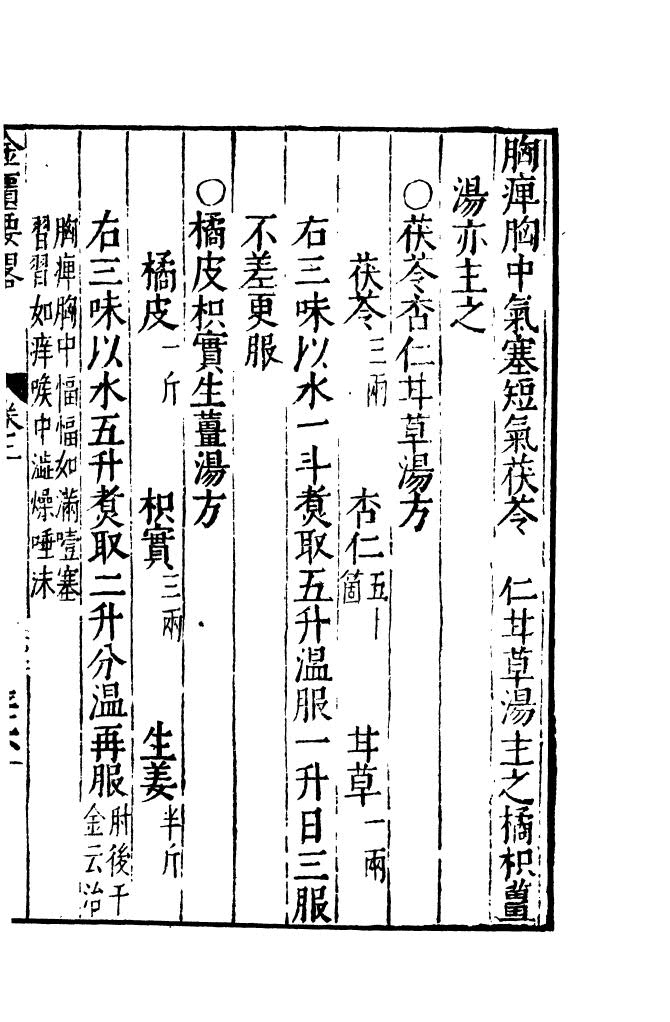 胸痺胸中氣塞短氣茯苓　仁甘草湯主之橘枳薑
湯亦主之
○茯苓杏仁甘草湯方
茯苓三兩　杏仁五十箇　甘草一兩
右三味以水一斗煑取五升温服一升日三服
不差更服
○橘皮枳實生薑湯方
橘皮一斤　枳實三兩　生姜半斤
右三味以水五升煑取二升分温再服肘後千金云治
胸痺胸中愊愊如滿噎塞
習習如痒喉中澁燥唾沫
金匱要畧